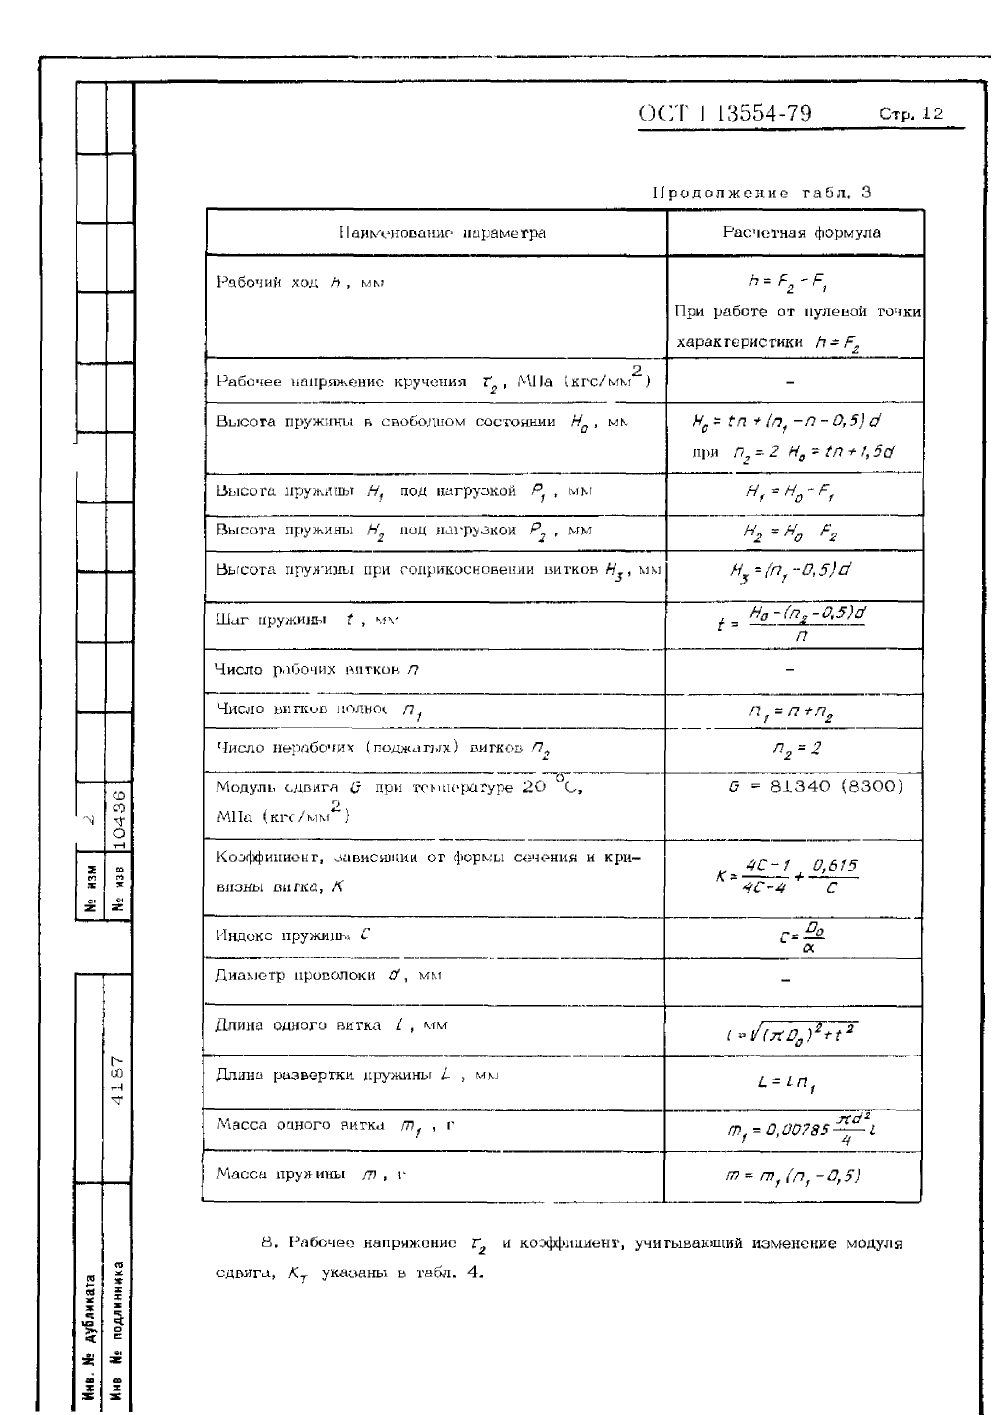 ОСТ 1 13554-79 Стр. 12
Продолжение табл. 3
Наименование параметра Расчетная формула
Рабочий ход h, мм h = F₂ - F₁
При работе от нулевой точки
характеристики h = F₂
Рабочее напряжение кручения τ₂, МПа (кгс/мм²) –
Высота пружины в свободном состоянии H₀, мм H₀ = tn + (n₁ - n - 0,5) d
при n₂ = 2 H₀ = tn + 1,5d
Высота пружины H₁ под нагрузкой P₁, мм H₁ = H₀ - F₁
Высота пружины H₂ под нагрузкой P₂, мм H₂ = H₀ F₂
Высота пружины при соприкосновении витков H₃, мм H₃ = (n₁ - 0,5) d
Шаг пружины t, мм t = (H₀ - (n₂ - 0,5) d) / n
Число рабочих витков n –
Число витков полное n₁ n₁ = n + n₂
Число нерабочих (поджатых) витков n₂ n₂ = 2
Модуль сдвига G при температуре 20 °С, G = 81340 (8300)
МПа (кгс/мм²)
Коэффициент, зависящий от формы сечения и кри-
визны витка, K K = (4C - 1) / (4C - 4) + 0,615 / C
Индекс пружины C C = D₀ / d
Диаметр проволоки d, мм –
Длина одного витка l, мм l = √((πD₀)² + t²)
Длина развертки пружины L, мм L = l n₁
Масса одного витка m₁, г m₁ = 0,00785 πd² / 4 l
Масса пружины m, г m = m₁ (n₁ - 0,5)
8. Рабочее напряжение τ₂ и коэффициент, учитывающий изменение модуля
сдвига, Kτ указаны в табл. 4.
№ изм 2
№ изв 10436
4187
Инв. № дубликата
Инв № подлинника